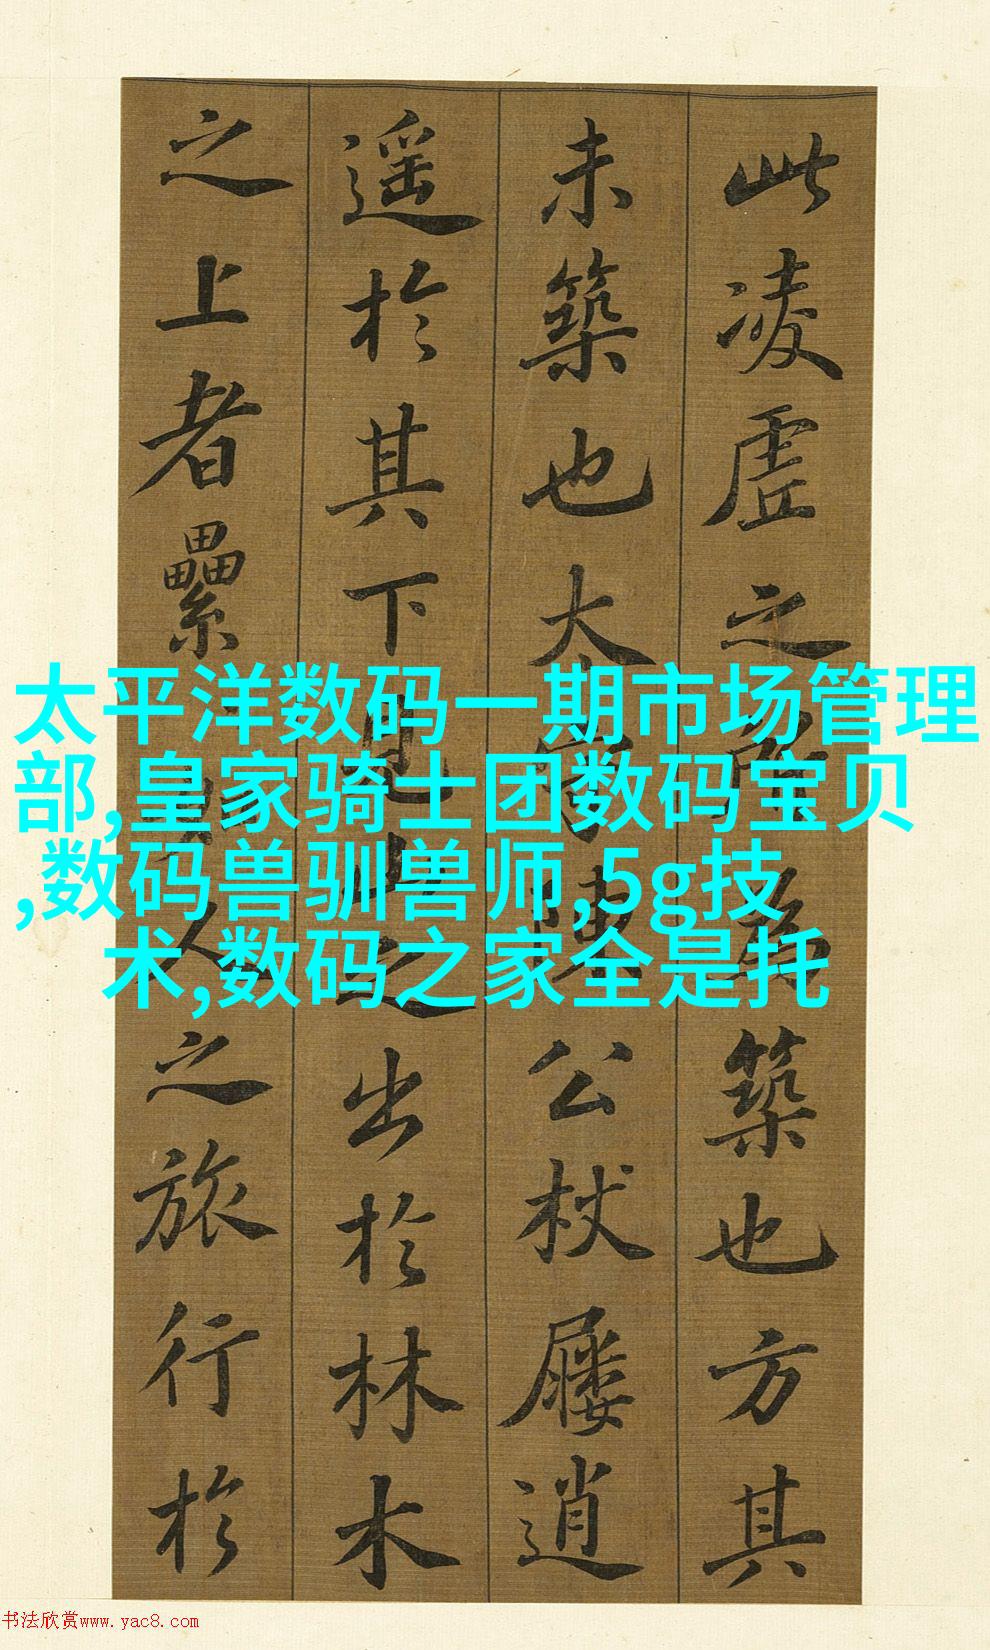 此凌虛之所為築也方其
未築也太守陳公杖屨逍
遥於其下見山之出於林木
之上者纍人之旅行於
太平洋数码一期市场管理
部,皇家骑士团数码宝贝
,数码兽驯兽师,5g技
术,数码之家全是托
书法欣赏www.yac8.com